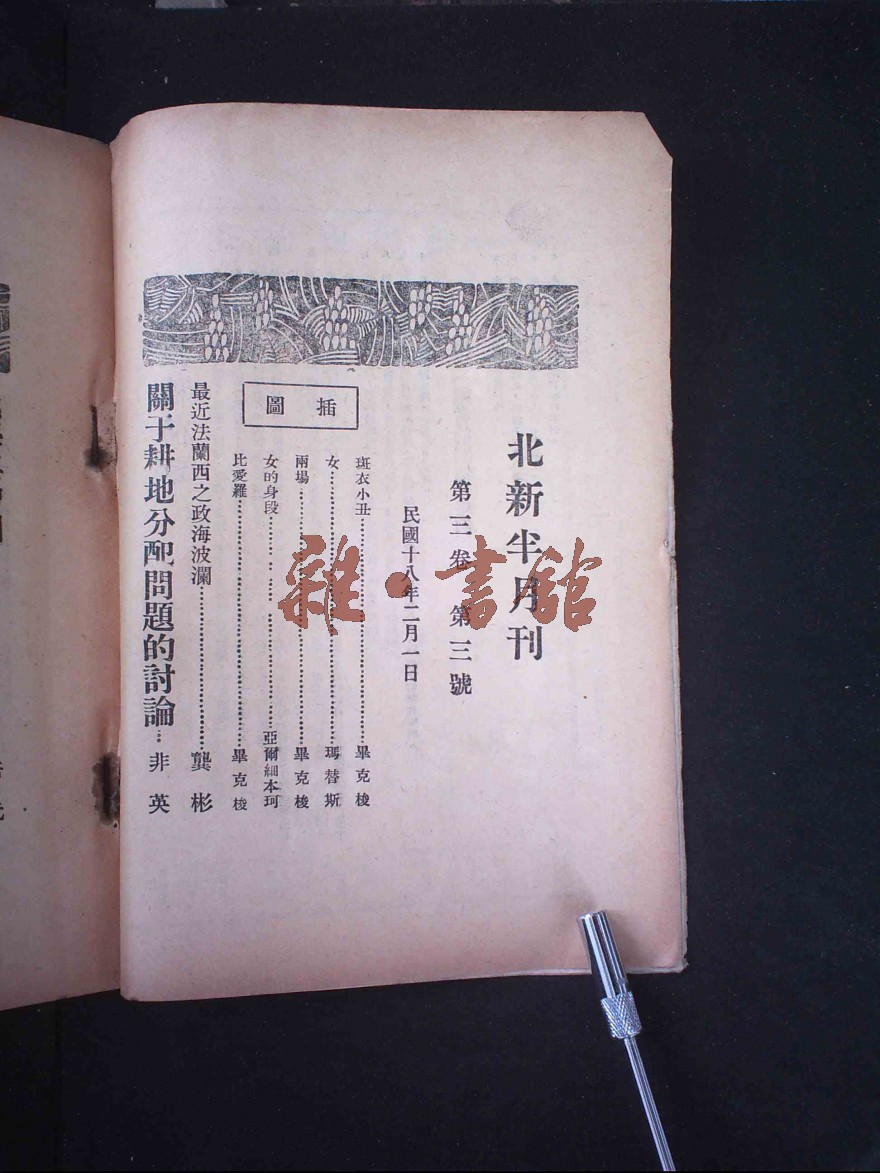 北新半月刊
第三卷 第三號
民國十八年二月一日
插圖
斑衣小丑……畢克梭
女……瑪替斯
兩場……畢克梭
女的身段……亞爾細本珂
比愛羅……畢克梭
最近法蘭西之政海波瀾……龔彬
關于耕地分配問題的討論…非英
雜·書館